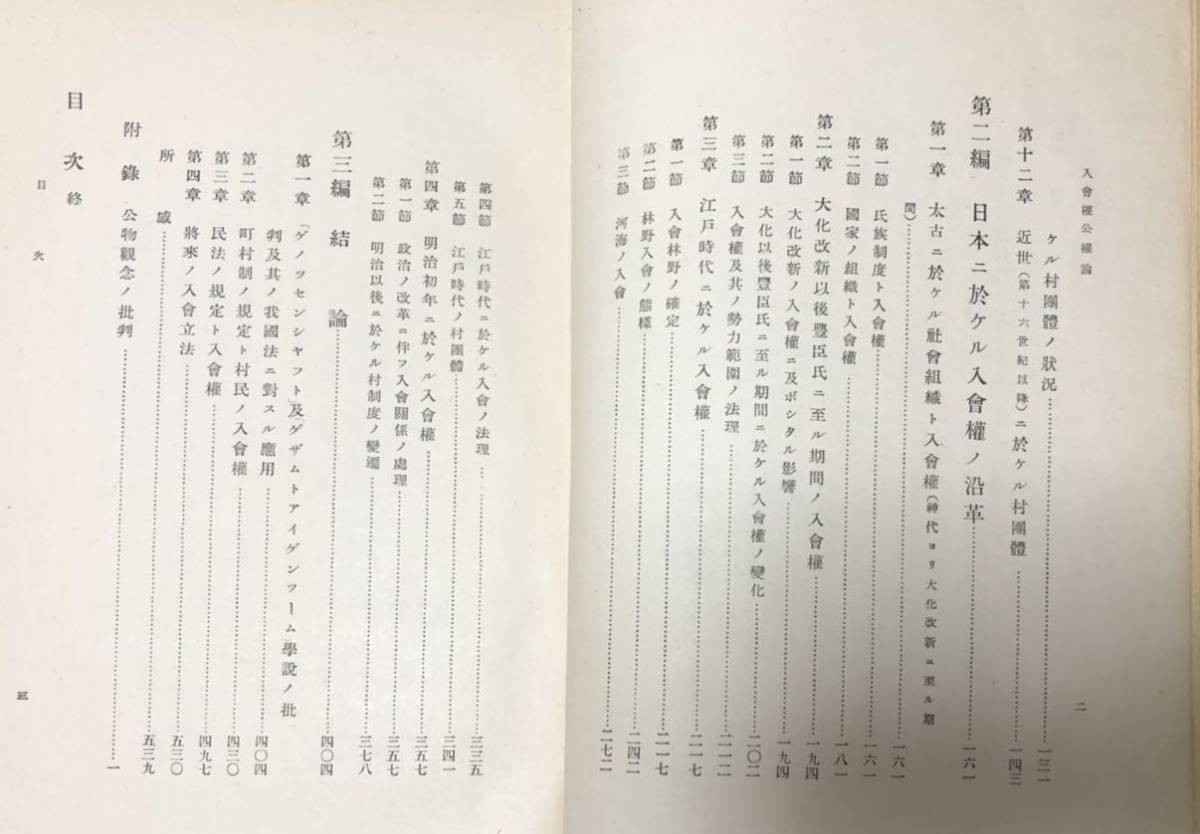 入會權公權論
二
ケル村團體ノ狀況……一三一
第十二章 近世(第十六世紀以降)ニ於ケル村團體……一四三
第二編 日本ニ於ケル入會權ノ沿革……一六一
第一章 太古ニ於ケル社會組織ト入會權(神代ヨリ大化改新ニ至ル期
間)……一六一
第一節 氏族制度ト入會權……一六一
第二節 國家ノ組織ト入會權……一八一
第二章 大化改新以後豐臣氏ニ至ル期間ノ入會權……一九四
第一節 大化改新ノ入會權ニ及ボシタル影響……一九四
第二節 大化以後豐臣氏ニ至ル期間ニ於ケル入會權ノ變化……二〇二
第三節 入會權及其ノ勢力範圍ノ法理……二一二
第三章 江戶時代ニ於ケル入會權……二一七
第一節 入會林野ノ確定……二一七
第二節 林野入會ノ態樣……二四二
第三節 河海ノ入會……二七二
第四節 江戶時代ニ於ケル入會ノ法理……三三五
第五節 江戶時代ノ村團體……三四一
第四章 明治初年ニ於ケル入會權……三五七
第一節 政治ノ改革ニ伴フ入會關係ノ處理……三五七
第二節 明治以後ニ於ケル村制度ノ變遷……三七八
第三編 結論……四〇四
第一章 「ゲノッセンシャフト」及「ゲザムトアイゲンツーム」學說ノ批
判及其ノ我國法ニ對スル應用……四〇四
第二章 町村制ノ規定ト村民ノ入會權……四三〇
第三章 民法ノ規定ト入會權……四九七
第四章 將來ノ入會立法……五三〇
所感……五三九
附錄 公物觀念ノ批判……一
目次終
目次
三